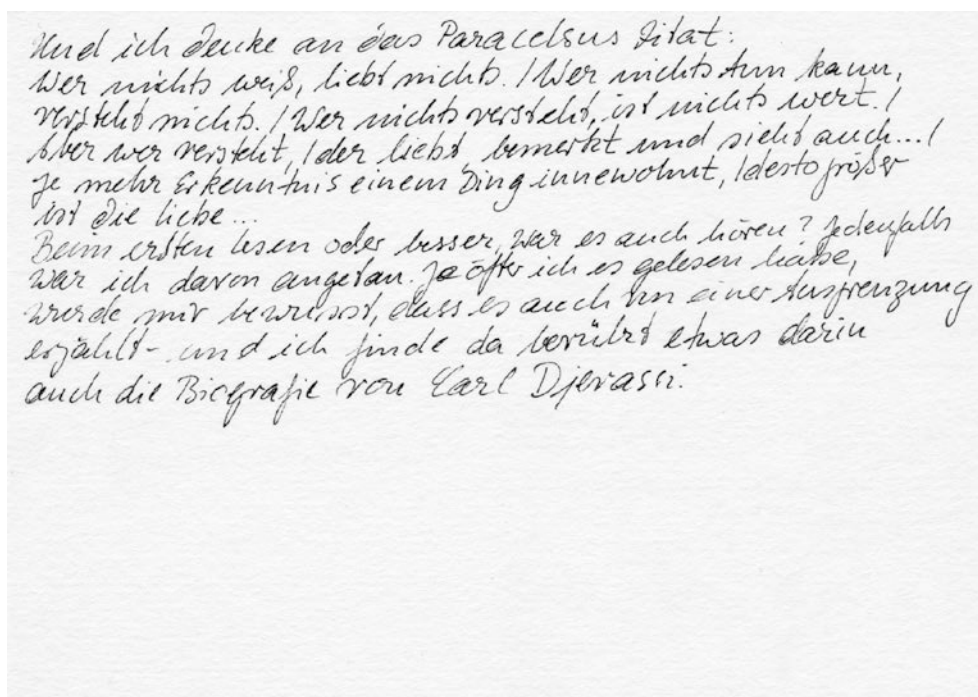 Und ich denke an das Paracelsus Zitat:
Wer nichts weiß, liebt nichts. / Wer nichts tun kann,
versteht nichts. / Wer nichts versteht, ist nichts wert. /
Aber wer versteht, / der liebt, bemerkt und sieht auch... /
Je mehr Erkenntnis einem Ding innewohnt, / desto größer
ist die Liebe...
Beim ersten lesen oder besser, war es auch hören? Jedenfalls
war ich davon angetan. Je öfter ich es gelesen habe,
wurde mir bewusst, dass es auch von einer Ausgrenzung
erzählt - und ich finde da berührt etwas darin
auch die Biografie von Carl Djerassi.